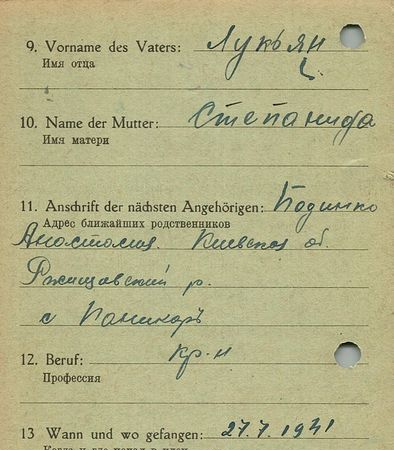 9. Vorname des Vaters: Лукьян
Имя отца
10. Name der Mutter: Степанида
Имя матери
11. Anschrift der nächsten Angehörigen:
Адрес ближайших родственников
Анастасия Киевская об.
Ржищовский р.
с
12. Beruf: кр-н
Профессия
13 Wann und wo gefangen: 27.7.1941